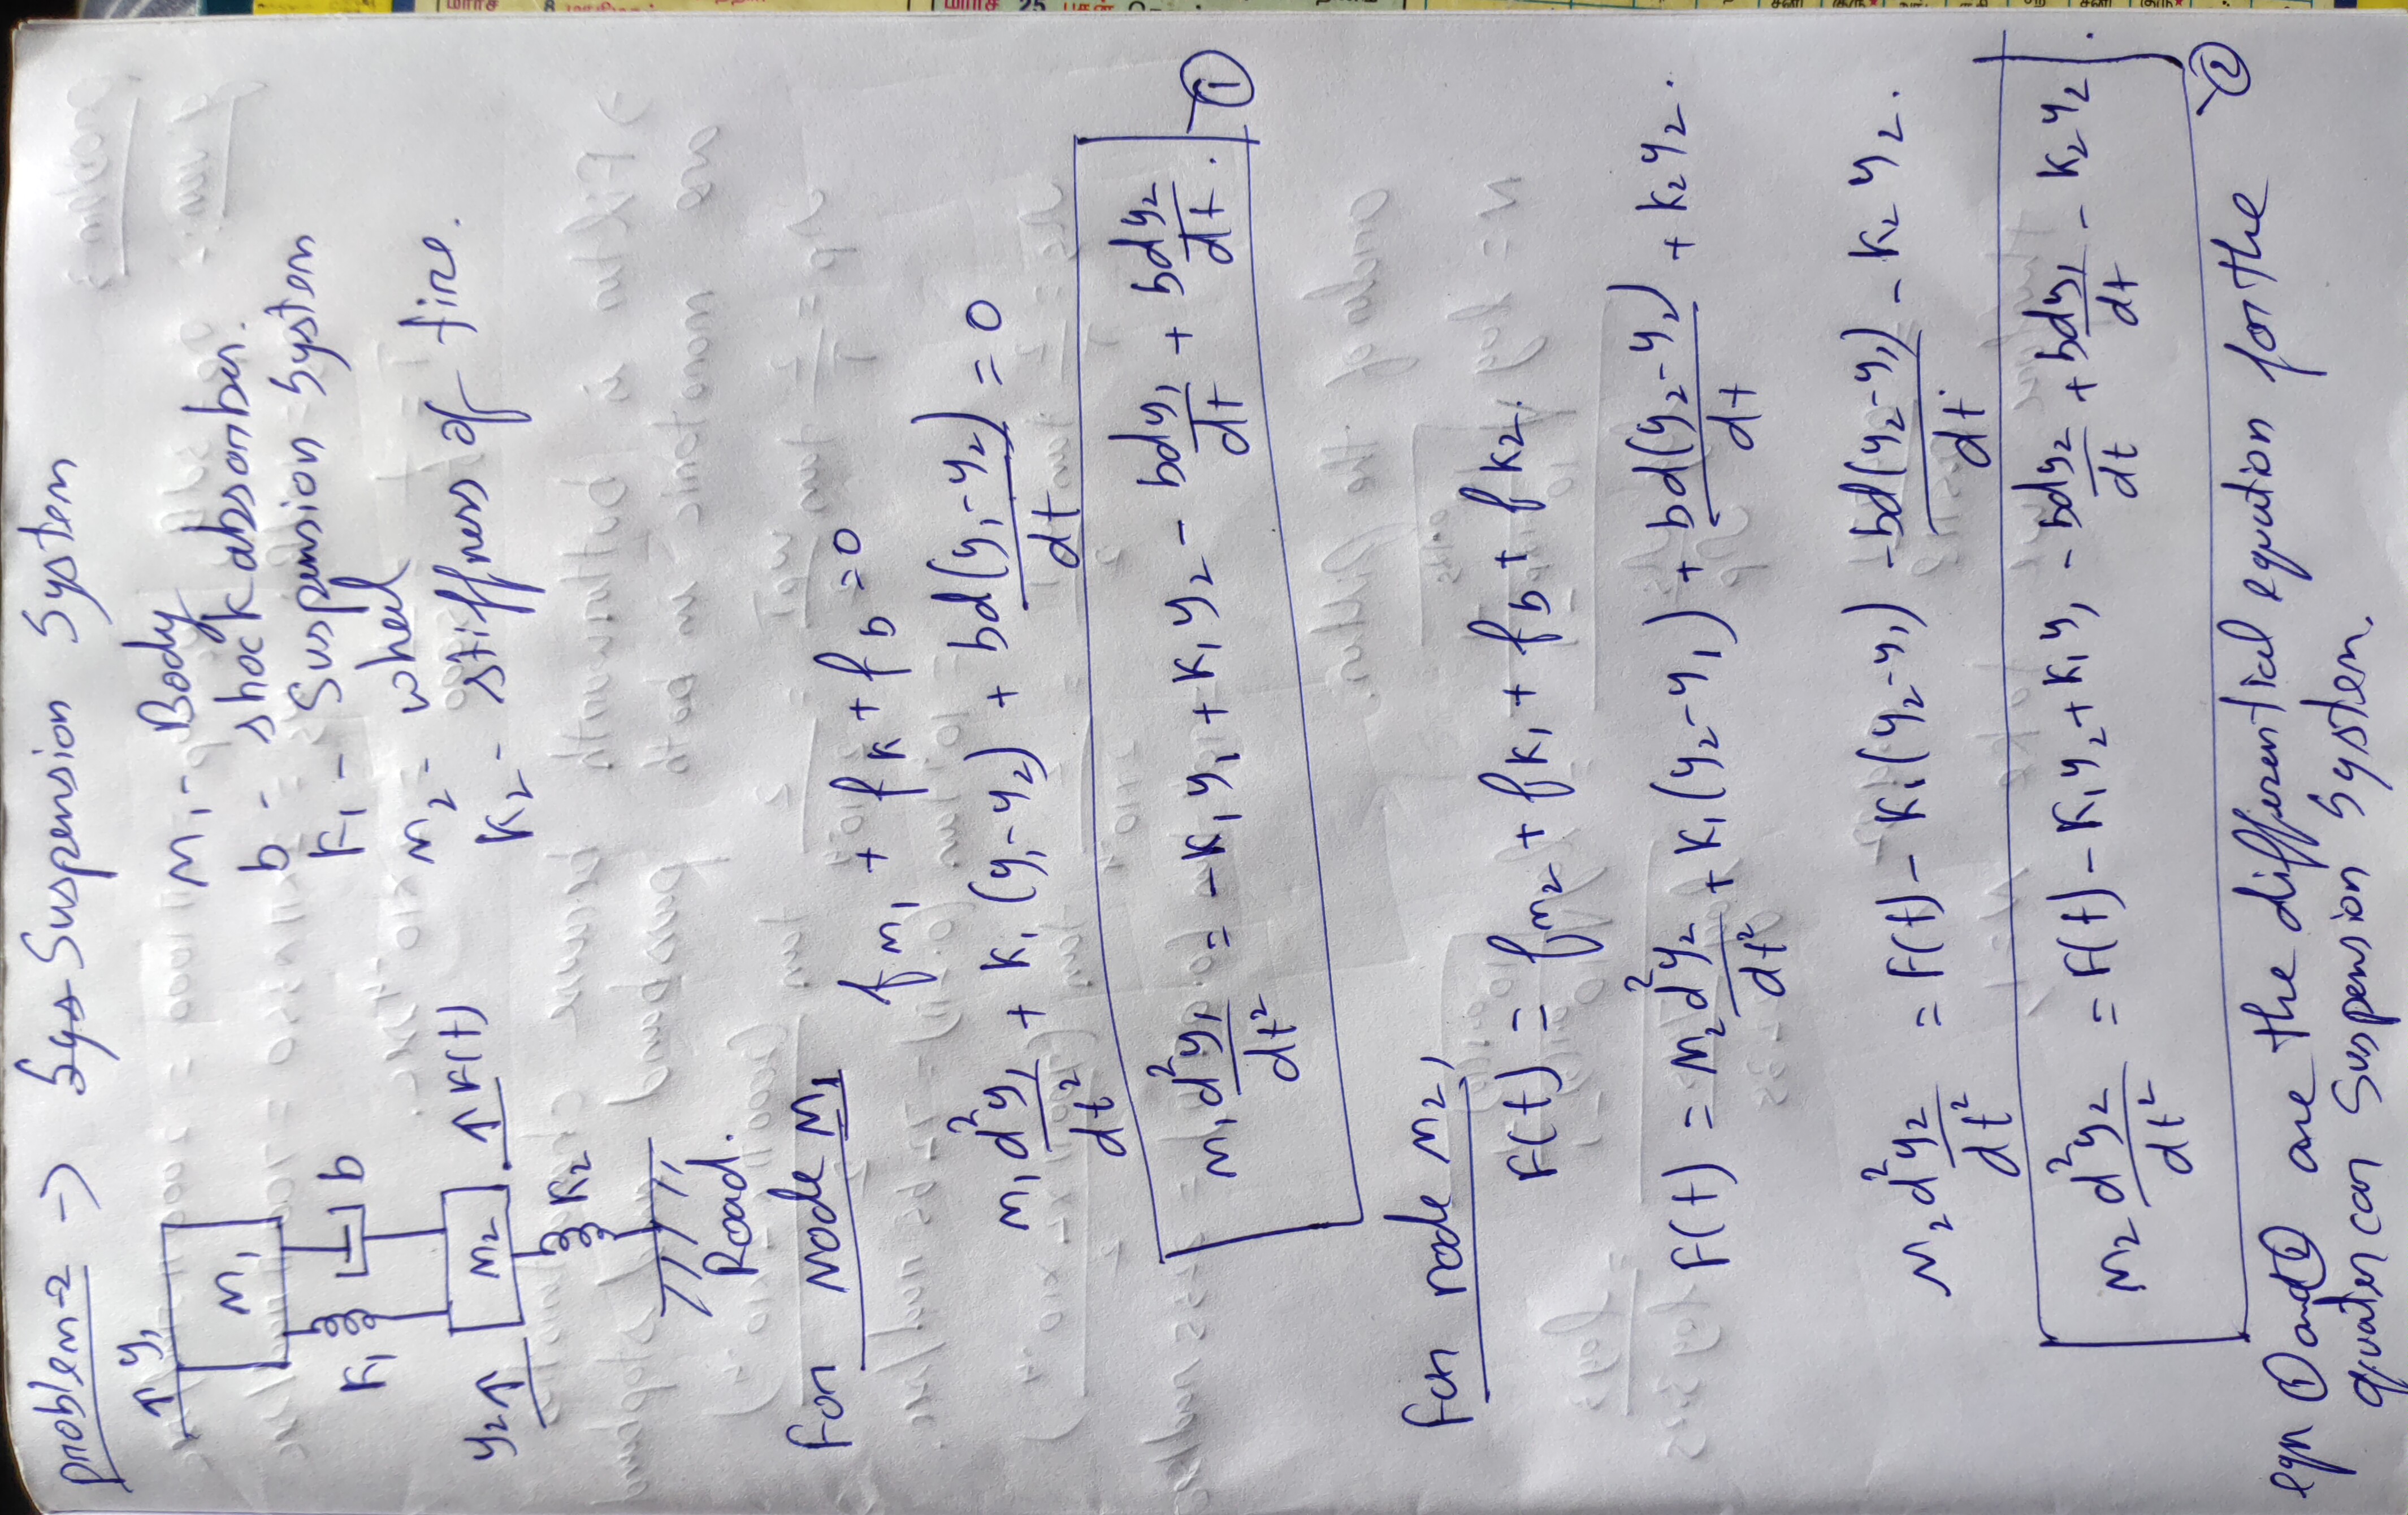 problem-2 → Sys Suspension System
↑ y₁
M₁
K₁
b
y₂ ↑
M₂
↑ F(t)
K₂
Road.
M₁ - Body
b - shock absorber.
K₁ - Suspension System
M₂ - wheel
K₂ - stiffness of tire.
For Node M₁
fm₁ + fk + fb = 0
M₁ d²y₁/dt² + K₁ (y₁-y₂) + bd(y₁-y₂)/dt = 0
M₁ d²y₁/dt² = -K₁ y₁ + K₁ y₂ - bdy₁/dt + bdy₂/dt. — ①
For node M₂,
F(t) = fm₂ + fk₁ + fb + fk₂.
F(t) = M₂ d²y₂/dt² + K₁(y₂-y₁) + bd(y₂-y₂)/dt + K₂y₂.
M₂ d²y₂/dt² = F(t) - K₁(y₂-y₁) - bd(y₂-y₁)/dt - K₂ y₂.
M₂ d²y₂/dt² = F(t) - K₁y₂ + K₁y₁ - bdy₂/dt + bdy₁/dt - K₂y₂. — ②
eqn ① and ② are the differential equation for the
quater car Suspension System.